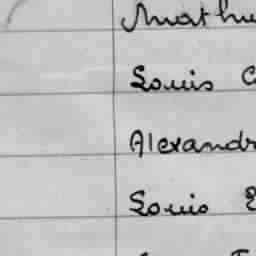 Mathu
Louis C
Alexandr
Louis E